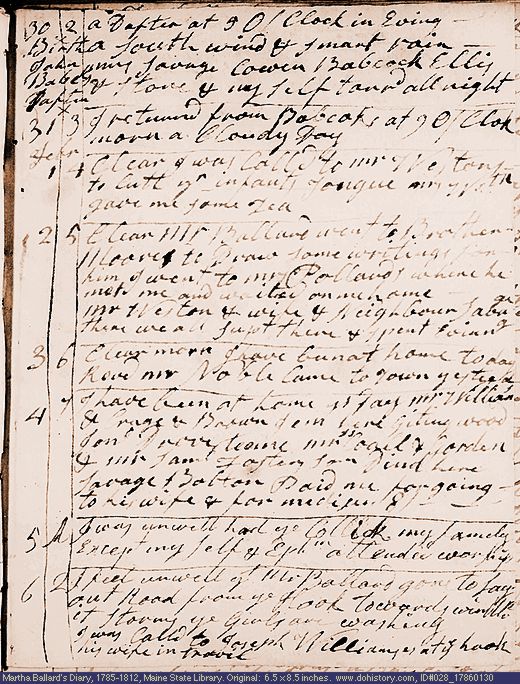 30 2 a Dafter at 9 O Clock in Evng
Birth a South wind & Smart rain
John mrs Savage Cowen Babcock Ellis
Babcs & Stone & my self tarrid all night
Dafter
31 3 I returnd from Babcoks at 9 O Clok
morn a Cloudy Day
Febr
1 4 Clear I was Calld to mr Westons
to Cutt ye infants Tongue mrs
gave me some Tea
2 5 Clear Mr Ballard went to Brother
Moores to Draw Some writings for
him I went to mr Pollards where he
met me and waited on me
mr Weston & wife & Neighbour
there we all Supt there & Spent Evang
3 6 Clear morn I have been at home to day
mr Noble Came to Town yesterd
4 7 I have been at home to Day mr William
& Crage & Brown were giting wood
for Savage & Gorden
& mr Saml
Savage Bolton Paid me for going
to his wife & for medisin
5 I was unwell had ye Collick my family
Except my self & Ephm attended worship
6 2 I feel unwell Mr Ballard gone to Lay
out Road from ye Hook towards
it Storms ye Girls are washing
I was Calld to Joseph Williams at ye hook
his wife in Travil
Martha Ballard's Diary, 1785-1812, Maine State Library. Original: 6.5 x 8.5 inches. www.dohistory.com, ID#028_17860130